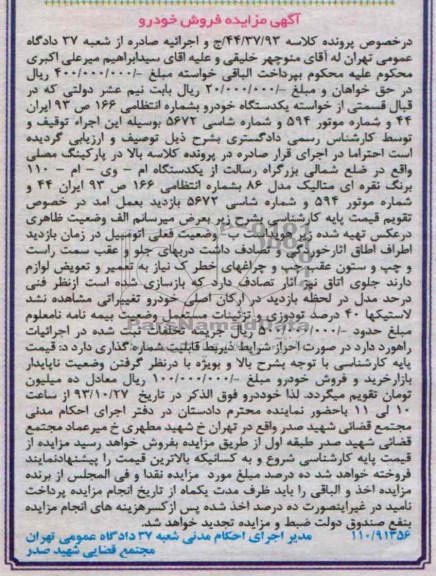 آگهی مزایده فروش خودرو
درخصوص پرونده کلاسه ۴۴/۳۷/۹۳/ج و اجرائیه صادره از شعبه ۳۷ دادگاه
عمومی تهران له آقای منوچهر خلیقی و علیه آقای سیدابراهیم میرعلی اکبری
محکوم علیه محکوم بپرداخت الباقی خواسته مبلغ -/۴۰۰/۰۰۰/۰۰۰ ریال
در حق خواهان و مبلغ -/۲۰/۰۰۰/۰۰۰ ریال بابت نیم عشر دولتی که در
قبال قسمتی از خواسته یکدستگاه خودرو بشماره انتظامی ۱۶۶ ص ۹۳ ایران
۴۴ و شماره موتور ۵۹۴ و شماره شاسی ۵۶۷۲ بوسیله این اجراء توقیف و
توسط کارشناس رسمی دادگستری بشرح ذیل توصیف و ارزیابی گردیده
است احتراما در اجرای قرار صادره در پرونده کلاسه بالا در پارکینگ مصلی
واقع در ضلع شمالی بزرگراه رسالت از یکدستگاه ام - وی - ام - ۱۱۰
برنگ نقره ای متالیک مدل ۸۶ بشماره انتظامی ۱۶۶ ص ۹۳ ایران ۴۴ و
شماره موتور ۵۹۴ و شماره شاسی ۵۶۷۲ بازدید بعمل امد در خصوص
تقویم قیمت پایه کارشناسی بشرح زیر بعرض میرسانم الف وضعیت ظاهری
درعکس تهیه شده زیر هویداست ب- وضعیت فعلی اتومبیل در زمان بازدید
اطراف اطاق اثارخوردگی و تصادف داشت دربهای جلو و عقب سمت راست
و چپ و ستون عقب چپ و چراغهای خطر ک نیاز به تعمیر و تعویض لوازم
دارند جلوی اتاق نیز اثار تصادف دارد که بازسازی شده است ازنظر فنی
درحد مدل در لحظه بازدید در ارکان اصلی خودرو تغییراتی مشاهده نشد
لاستیکها ۴۰ درصد تودوزی و تزئینات مستعمل وضعیت بیمه نامه نامعلوم
مبلغ حدود ریال جریمه تخلفات ثبت شده در اجرائیات
راهورد دارد در صورت احراز شرایط ذیربط قابلیت شماره گذاری دارد د: قیمت
پایه کارشناسی با توجه بشرح بالا و بویژه با درنظر گرفتن وضعیت ناپایدار
بازارخرید و فروش خودرو مبلغ -/۱۰۰/۰۰۰/۰۰۰ ریال معادل ده میلیون
تومان تقویم میگردد. لذا خوددرو فوق الذکر در تاریخ ۹۳/۱۰/۲۷ از ساعت
۱۰ لی ۱۱ باحضور نماینده محترم دادستان در دفتر اجرای احکام مدنی
مجتمع قضائی شهید صدر واقع در تهران خ شهید مطهری خ میرعماد مجتمع
قضائی شهید صدر طبقه اول از طریق مزایده بفروش خواهد رسید مزایده از
قیمت پایه کارشناسی شروع و به کسانیکه بالاترین قیمت را پیشنهادنمایند
فروخته خواهد شد ده درصد مبلغ مورد مزایده نقدا و فی المجلس از برنده
مزایده اخذ و الباقی را باید ظرف مدت یکماه از تاریخ انجام مزایده پرداخت
نامید در غیراینصورت ده درصد اخذ شده پس ازکسرهزینه های انجام مزایده
بنفع صندوق دولت ضبط و مزایده تجدید خواهد شد.
۱۱۰/۹۱۳۵۶ مدیر اجرای احکام مدنی شعبه ۳۷ دادگاه عمومی تهران
مجتمع قضایی شهید صدر